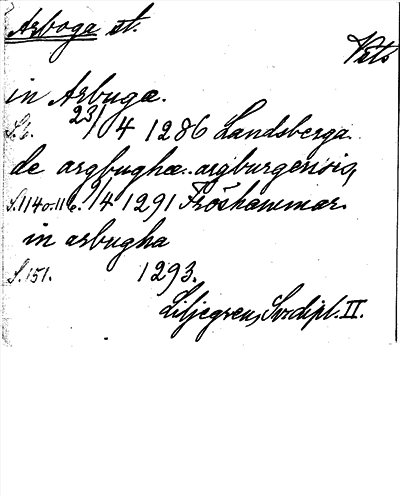 Arboga st.
Vstm
in Arbuga.
S.6. 23/4 1286 Landsberga
de argbugha. argburgensis,
S.114 o. 116. 9/4 1291 Fröshammar
in arbugha
S.151. 1293.
Liljegren, Sv. dipl. II.